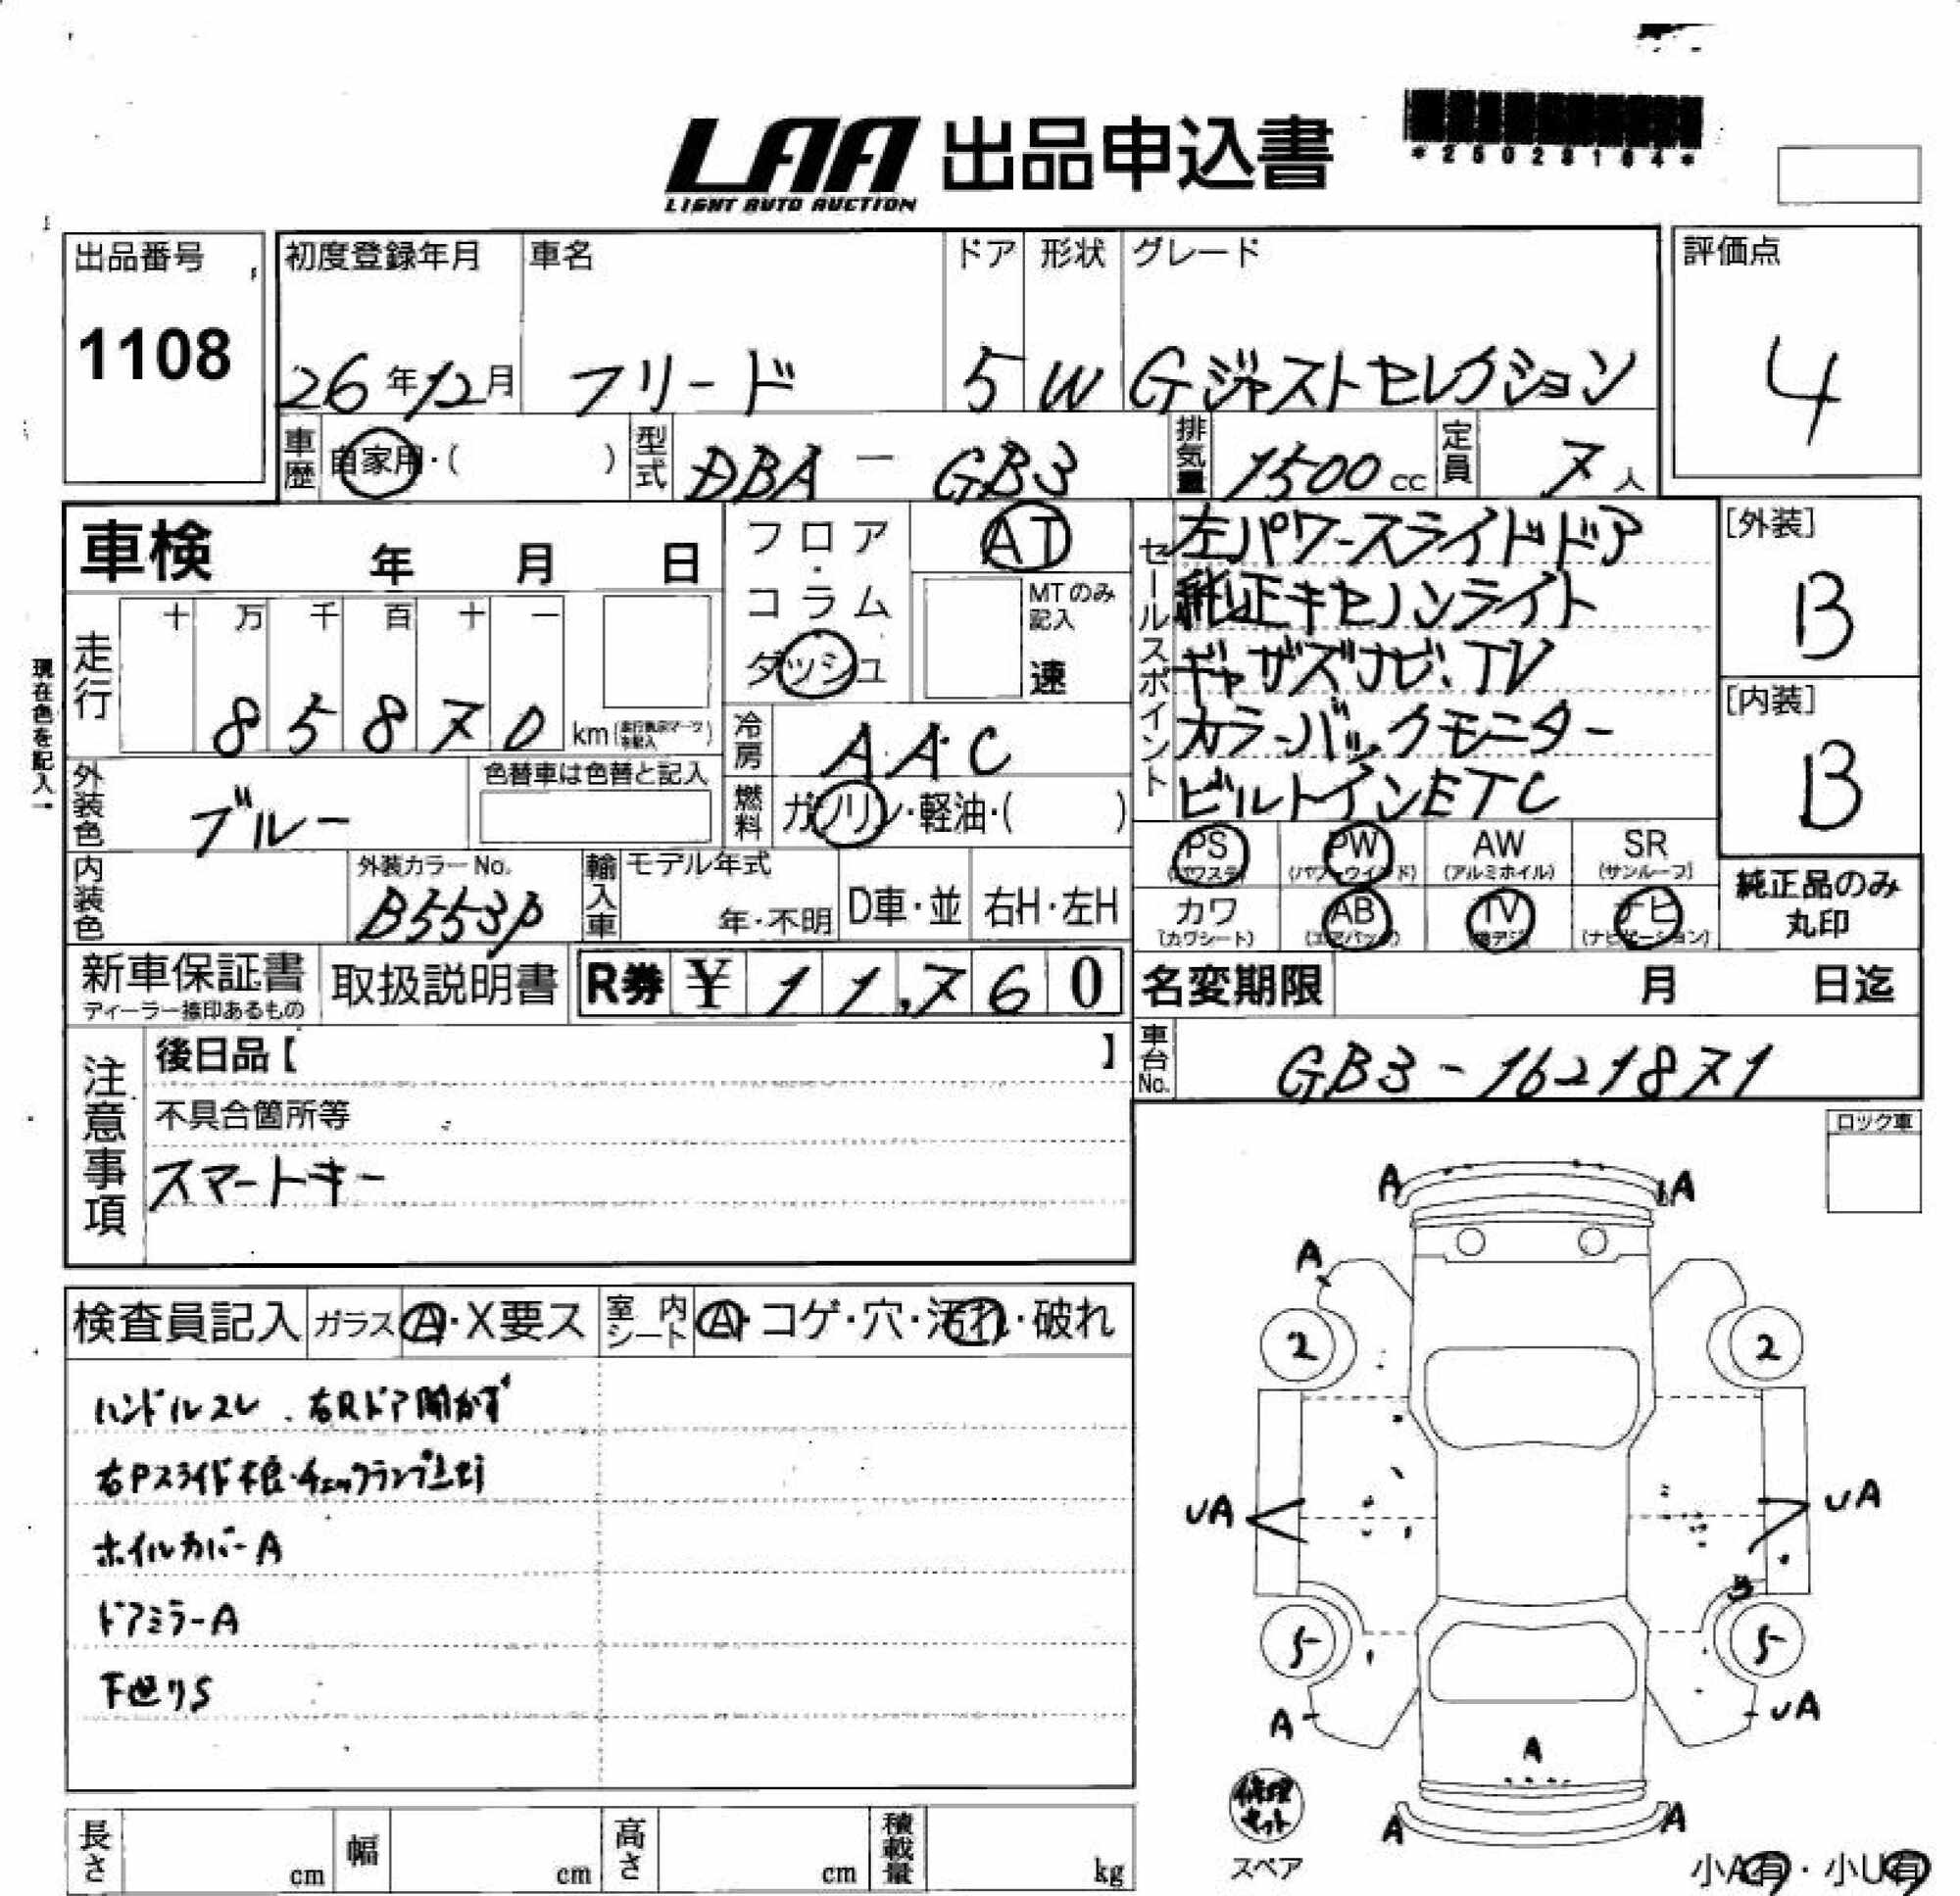 LAA 出品申込書
LIGHT AUTO AUCTION
*25028164*
出品番号
1108
初度登録年月
26年12月
車名
フリード
ドア
5
形状
W
グレード
Gジャストセレクション
評価点
4
車歴
自家用・( )
型式
DBA - GB3
排気量
1500 cc
定員
7人
車検 年 月 日
フロア・コラム
ダッシュ
AT
MTのみ記入
速
セールスポイント
左パワースライドドア
純正キセノンライト
ギャザズナビ、TV
カラーバックモニター
ビルトインETC
[外装]
B
[内装]
B
現在色を記入→
走行
十 万 千 百 十 一
8 5 8 7 0 km
冷房
A.A.C
外装色
ブルー
色替車は色替と記入
燃料
ガソリン・軽油・( )
内装色
外装カラーNo.
B553P
輸入車
モデル年式
年・不明
D車・並
右H・左H
PS
(パワステ)
PW
(パワーウインド)
AW
(アルミホイル)
SR
(サンルーフ)
カワ
(カワシート)
AB
(エアバッグ)
TV
(地デジ)
ナビ
(ナビゲーション)
純正品のみ
丸印
新車保証書
ディーラー捺印あるもの
取扱説明書
R券 ¥ 1 1,7 6 0
名変期限 月 日迄
車台No.
GB3-1621871
注意事項
後日品【 】
不具合箇所等
スマートキー
ロック車
検査員記入
ガラス
A・X要ス
室内シート
A・コゲ・穴・汚れ・破れ
ハンドルスレ、右Rドア開かず
右Pスライド不良・チェックランプ点灯
ホイルカバーA
ドアミラーA
下廻りS
A
A
A
2
2
UA
UA
5
5
A
UA
A
A
A
修理キット
スペア
小A有・小U有
長さ cm
幅 cm
高さ cm
積載量 kg